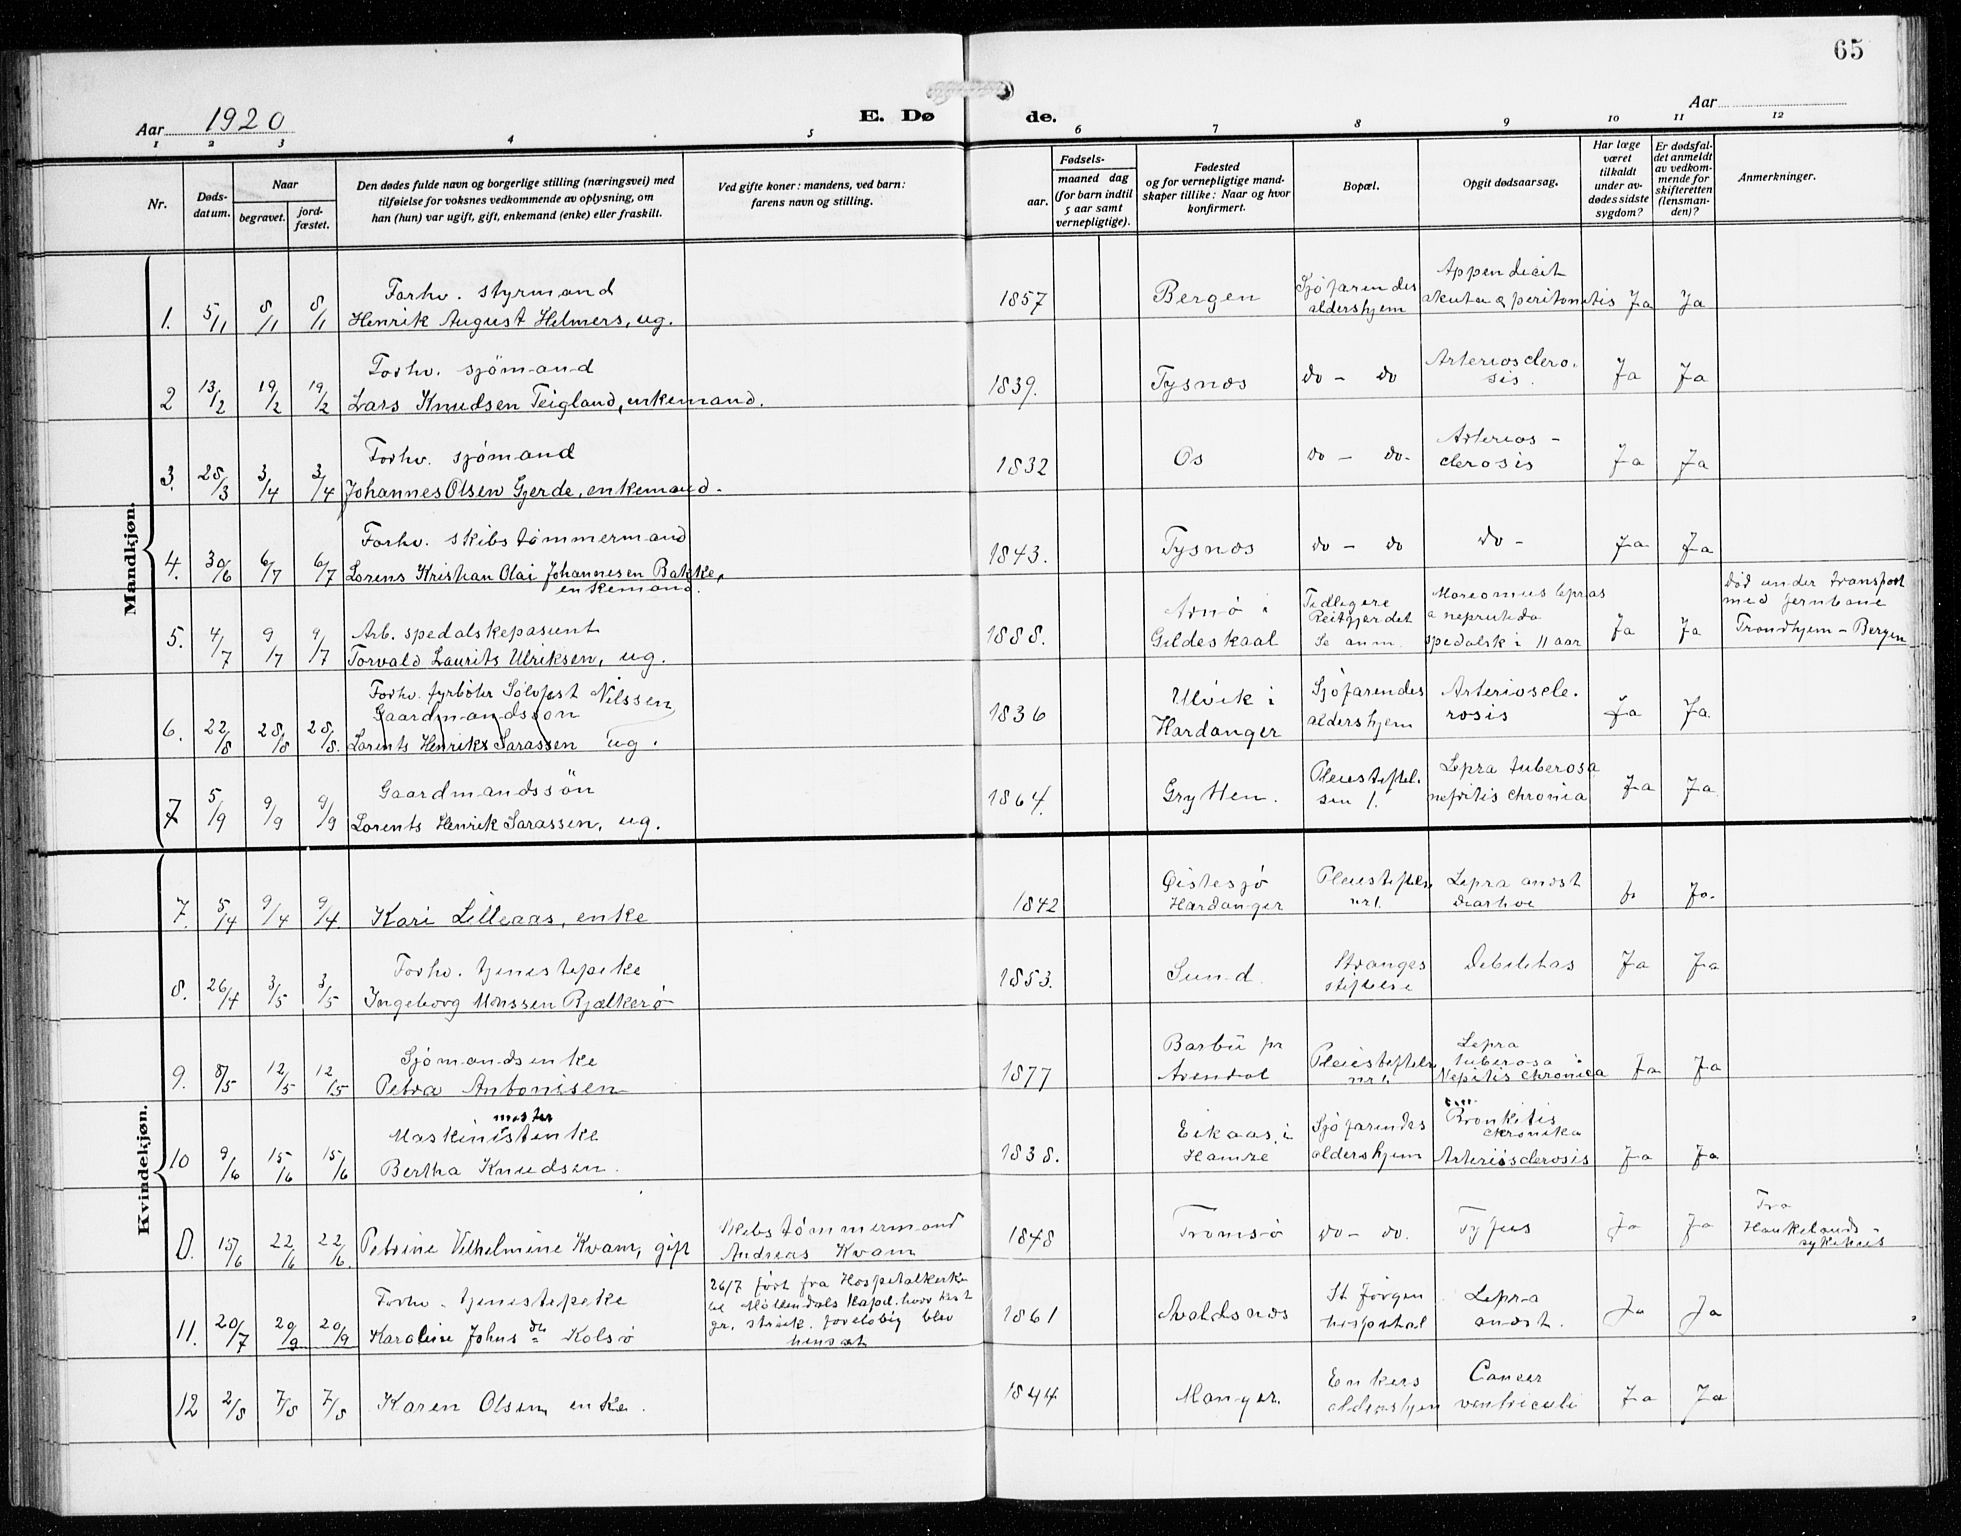 65
Aar 1920
E. Dø
de.
Aar
1 2 3 4 5 6 7 8 9 10 11 12
Nr.
Døds-
datum.
Naar
begravet.
jord-
fæstet.
Den dødes fulde navn og borgerlige stilling (næringsvei) med
tilføielse for voksnes vedkommende av oplysning, om
han (hun) var ugift, gift, enkemand (enke) eller fraskilt.
Ved gifte koner: mandens, ved barn:
farens navn og stilling.
Fødsels-
aar.
maaned dag
(for barn indtil
5 aar samt
vernepligtige).
Fødested
og for vernepligtige mand-
skaper tillike: Naar og hvor
konfirmert.
Bopæl.
Opgit dødsaarsag.
Har læge
været
tilkaldt
under av-
dødes sidste
sygdom?
Er dødsfal-
det anmeldt
av vedkom-
mende for
skifteretten
(lensman-
den)?
Anmerkninger.
Mandkjøn.
Forhv. styrmand
1. 5/1 8/1 8/1 Henrik August Helmers, ug.
1857 Bergen
Sjöfarendes
aldershjem
Appendicit
akuta & peritonitis
Ja Ja
Forhv. sjömand
2 13/2 19/2 19/2 Lars Knudsen Teigland, enkemand.
1839. Tysnes do - do
Arteriosclero-
sis.
Ja Ja
Forhv. sjömand
3. 28/3 3/4 3/4 Johannes Olsen Gjerde, enkemand.
1832 Os do - do-
Arterios-
clerosis
Ja Ja
Forhv. skibstømmermand
4. 30/6 6/7 6/7 Lorens Kristian Olai Johannesen Bakke,
enkemand.
1843. Tysnes do - do do - Ja Ja
Arb. spedalskepasient
5. 4/7 9/7 9/7 Torvald Laurits Ulriksen, ug.
1888.
Arnö i
Gildeskaal
Tidligere
Reitgjerdet
Se anm.
lepras
spedalsk i 11 aar
Ja Ja
Död under transport
med jernbane
Trondhjem - Bergen
Forhv. fyrböter Sölvfest Nilssen
Gaardmandssön
6. 22/8 28/8 28/8. Lorents Henriks Sarassen ug.
1836
Ulvik i
Hardanger
Sjöfarendes
aldershjem
Arterioscle-
rosis
Ja Ja.
Gaardmandssön
7 5/9 9/9 9/9 Lorents Henrik Sarassen, ug.
1864. Grytten.
Pleiestiftel.
sen 1.
Lepra tuberosa
nefritis chronica
Ja Ja
Kvindekjøn.
7. 5/4 9/4 9/4. Kari Lilleaas, enke
1842
Östesjö
Hardanger
Pleiestiftelse
nr 1.
Lepra anæst
diarhoe
Ja Ja.
Forhv. tjenestepike
8. 26/4 3/5 3/5 Ingeborg Monssen Bjelkerö
1853. Sund.
Stranges
stiftelse
Debilitas Ja Ja
Sjömandsenke
9. 8/5 12/5 12/5 Petra Antonisen
1877
Barbu pr
Arendal
Pleiestiftelse
nr 1.
Lepra
tuberosa
Nepitis chronica
Ja Ja
mester
Maskinistenke
10 9/6 15/6 15/6 Bertha Knudsen.
1838.
Eikaas i
Hamre
Sjöfarendes
aldershjem
Bronkitis
chronika
Arteriosclerosis
Ja Ja
15/6 22/6 22/6. Petrine Vilhelmine Kvam, gift
Skibstömmermand
Andreas Kvam
1848 Tromsö do - do. Tyfus Ja Ja
Fra
Haukelands-
sykehus
Forhv. tjenestepike
11. 20/7 20/9 20/9 Karoline Johns dtr Kolsö
26/7 fört fra Hospitalkirke
til Möllendals Kapel. hvor kist
gr. streik. foreløbig blev
hensat
1861 Avaldsnes
St Jörgen
hospital
Lepra
anæst.
Ja Ja
12 2/8 7/8 7/8 Karen Olsen, enke.
1844 Manger.
Enkers
aldershjem
Cancer
ventriculi
Ja Ja